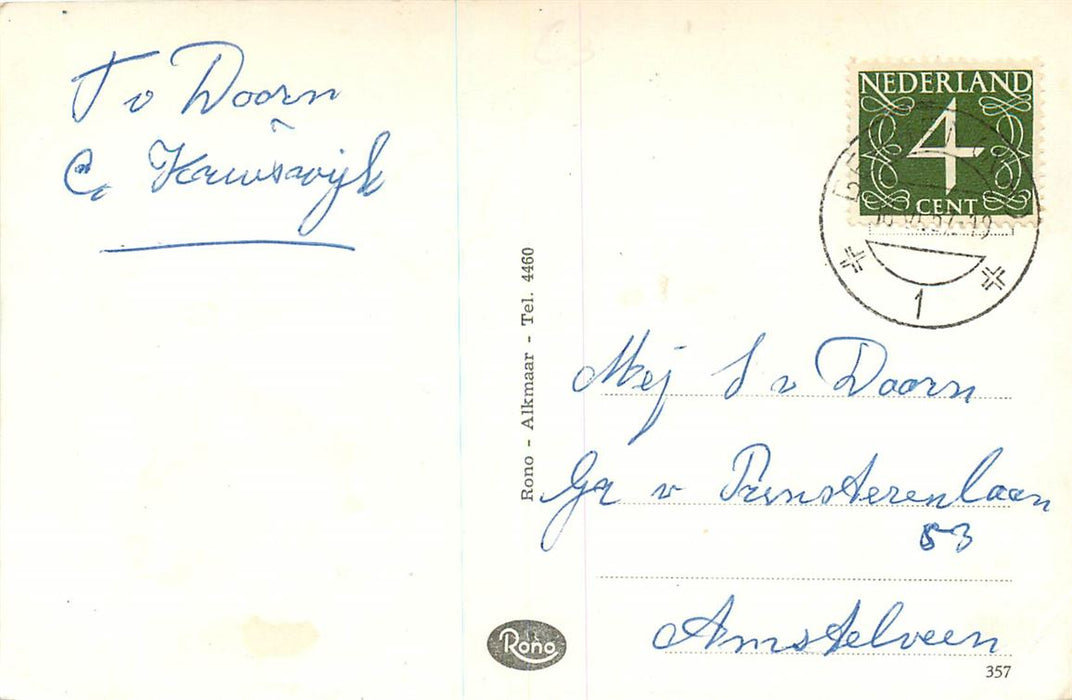 T v Doorn
C. Kruiswijk
Rono - Alkmaar - Tel. 4460
NEDERLAND
4
CENT
1
Mej J v Doorn
Gr v Prinstererlaan
53
Amstelveen
Rono
357